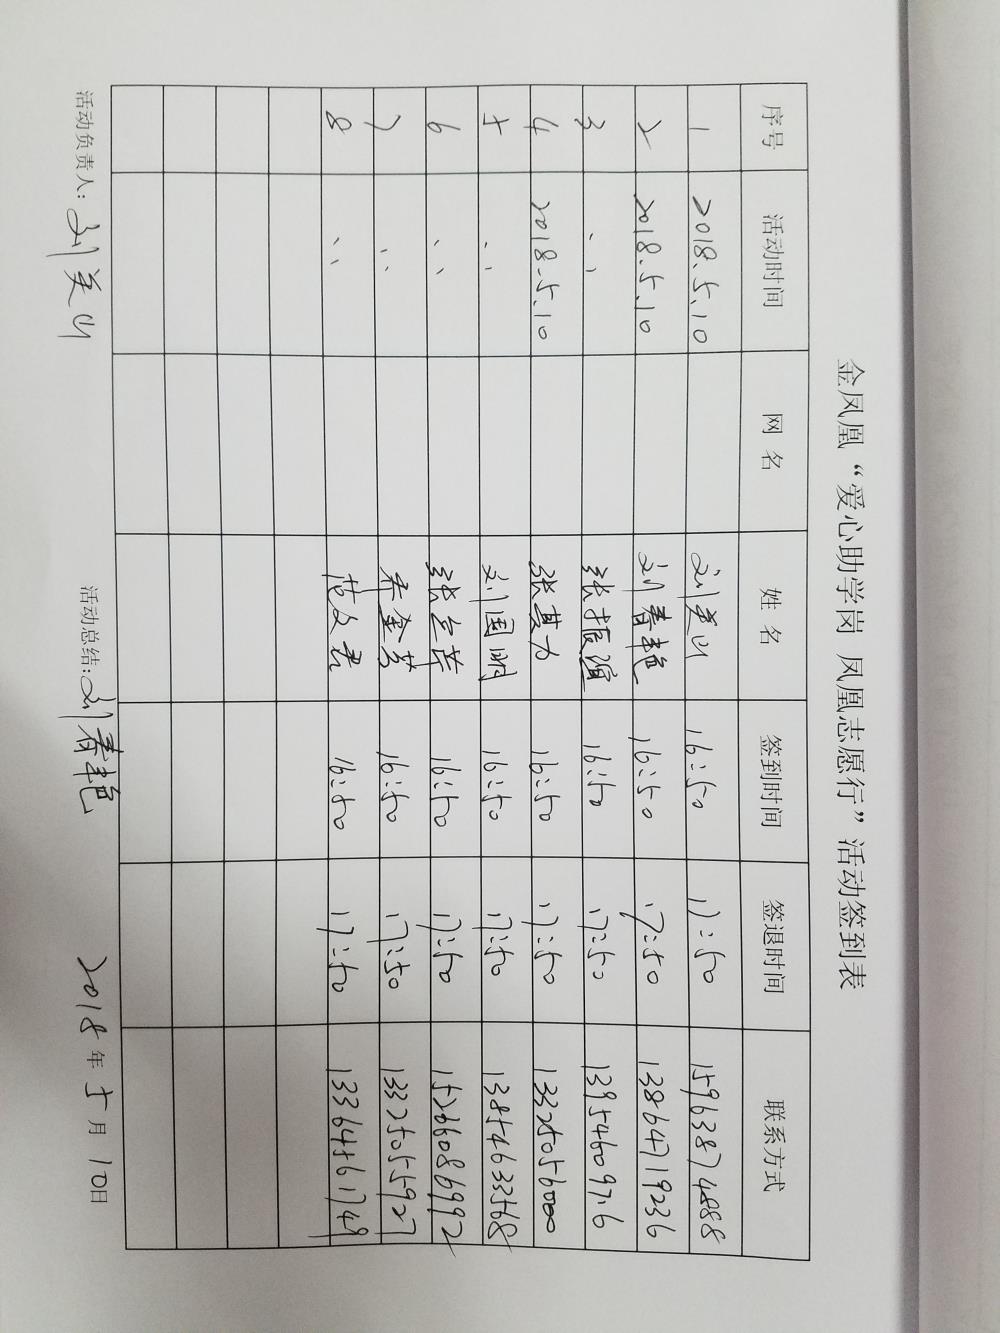 金凤凰“爱心助学岗 凤凰志愿行”活动签到表
序号 活动时间 网 名 姓 名 签到时间 签退时间 联系方式
1 2018.5.10 刘美山 16:50 17:50 15963874888
2 2018.5.10 刘春艳 16:50 17:50 13864719236
3 〃 张振渲 16:50 17:50 13954609716
4 2018.5.10 张其力 16:50 17:50 13325056000
5 〃 刘国明 16:50 17:50 13854633568
6 〃 张立苹 16:50 17:50 15266086992
7 〃 乔金芳 16:50 17:50 13325055927
8 〃 范文君 16:50 17:50 13364561749
活动负责人: 刘美山 活动总结: 刘春艳 2018年5月10日